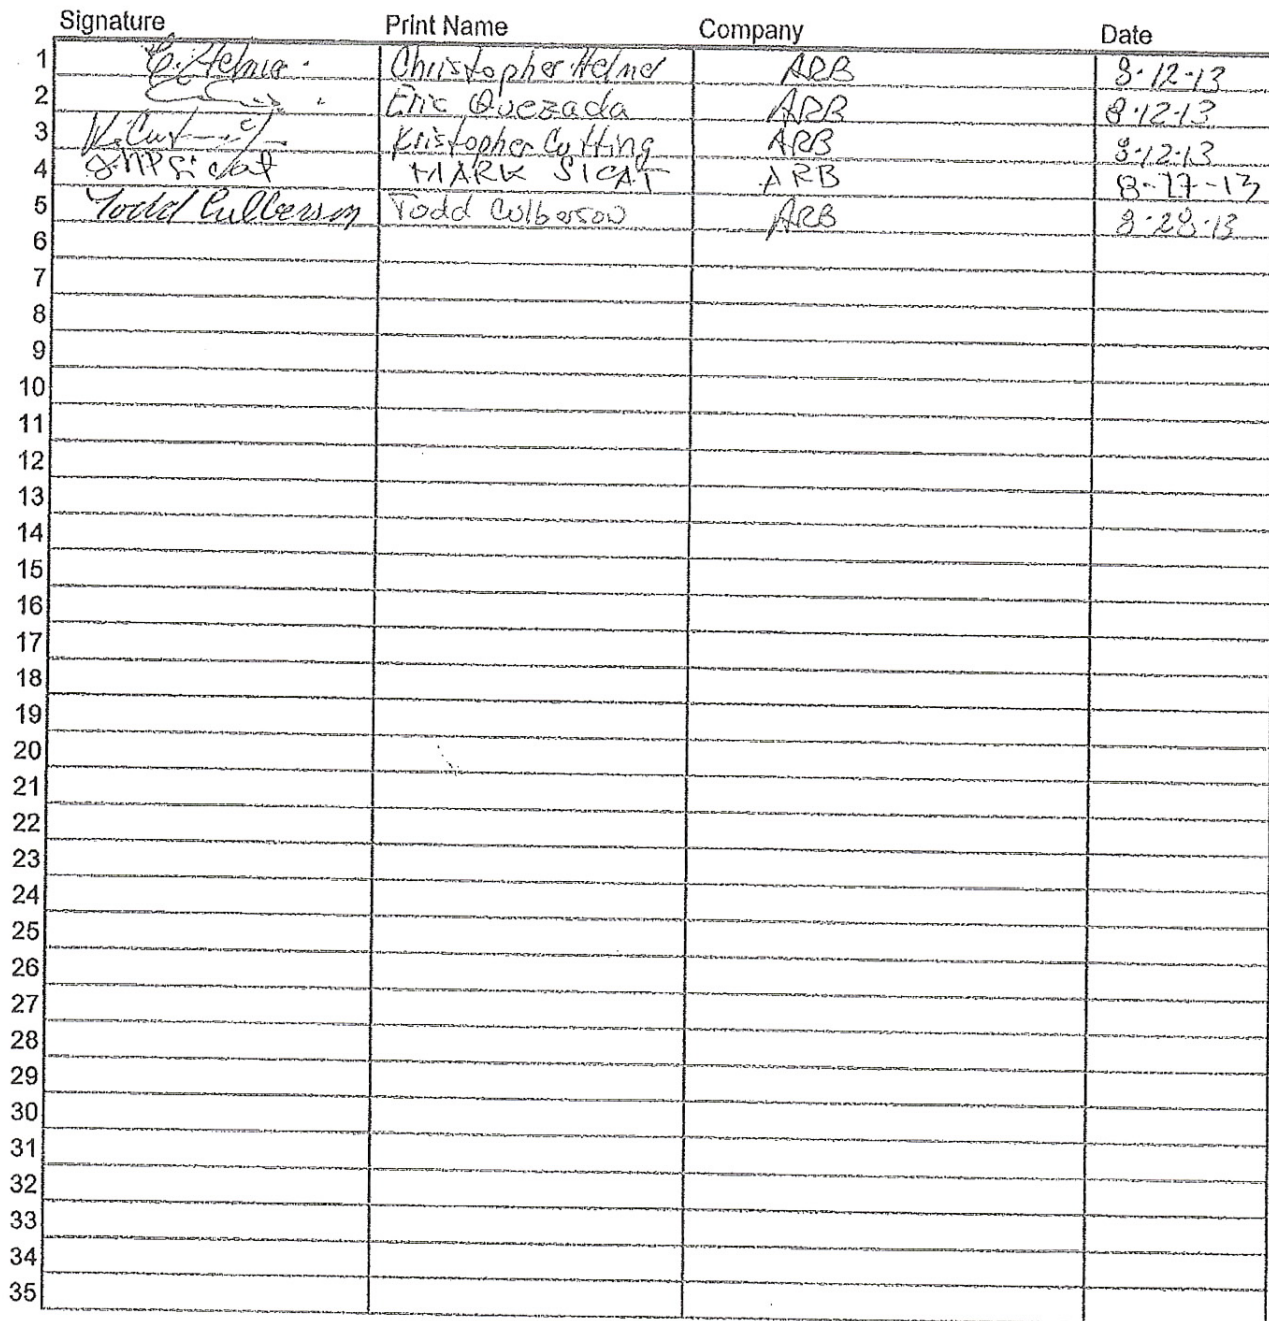 Signature Print Name Company Date
1 C. Helme Christopher Helme ARB 8-12-13
2 Eric Quezada ARB 8-12-13
3 Kristopher Cutting ARB 8-12-13
4 MPSicat MARK SICAT ARB 8-27-13
5 Todd Culberson Todd Culberson ARB 8-28-13
6
7
8
9
10
11
12
13
14
15
16
17
18
19
20
21
22
23
24
25
26
27
28
29
30
31
32
33
34
35